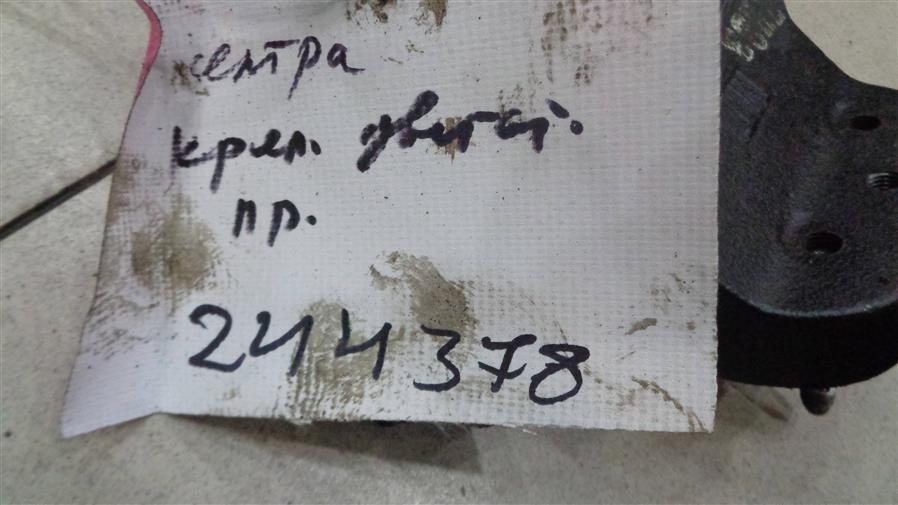 сентра
креп. двигат.
пр.
244378